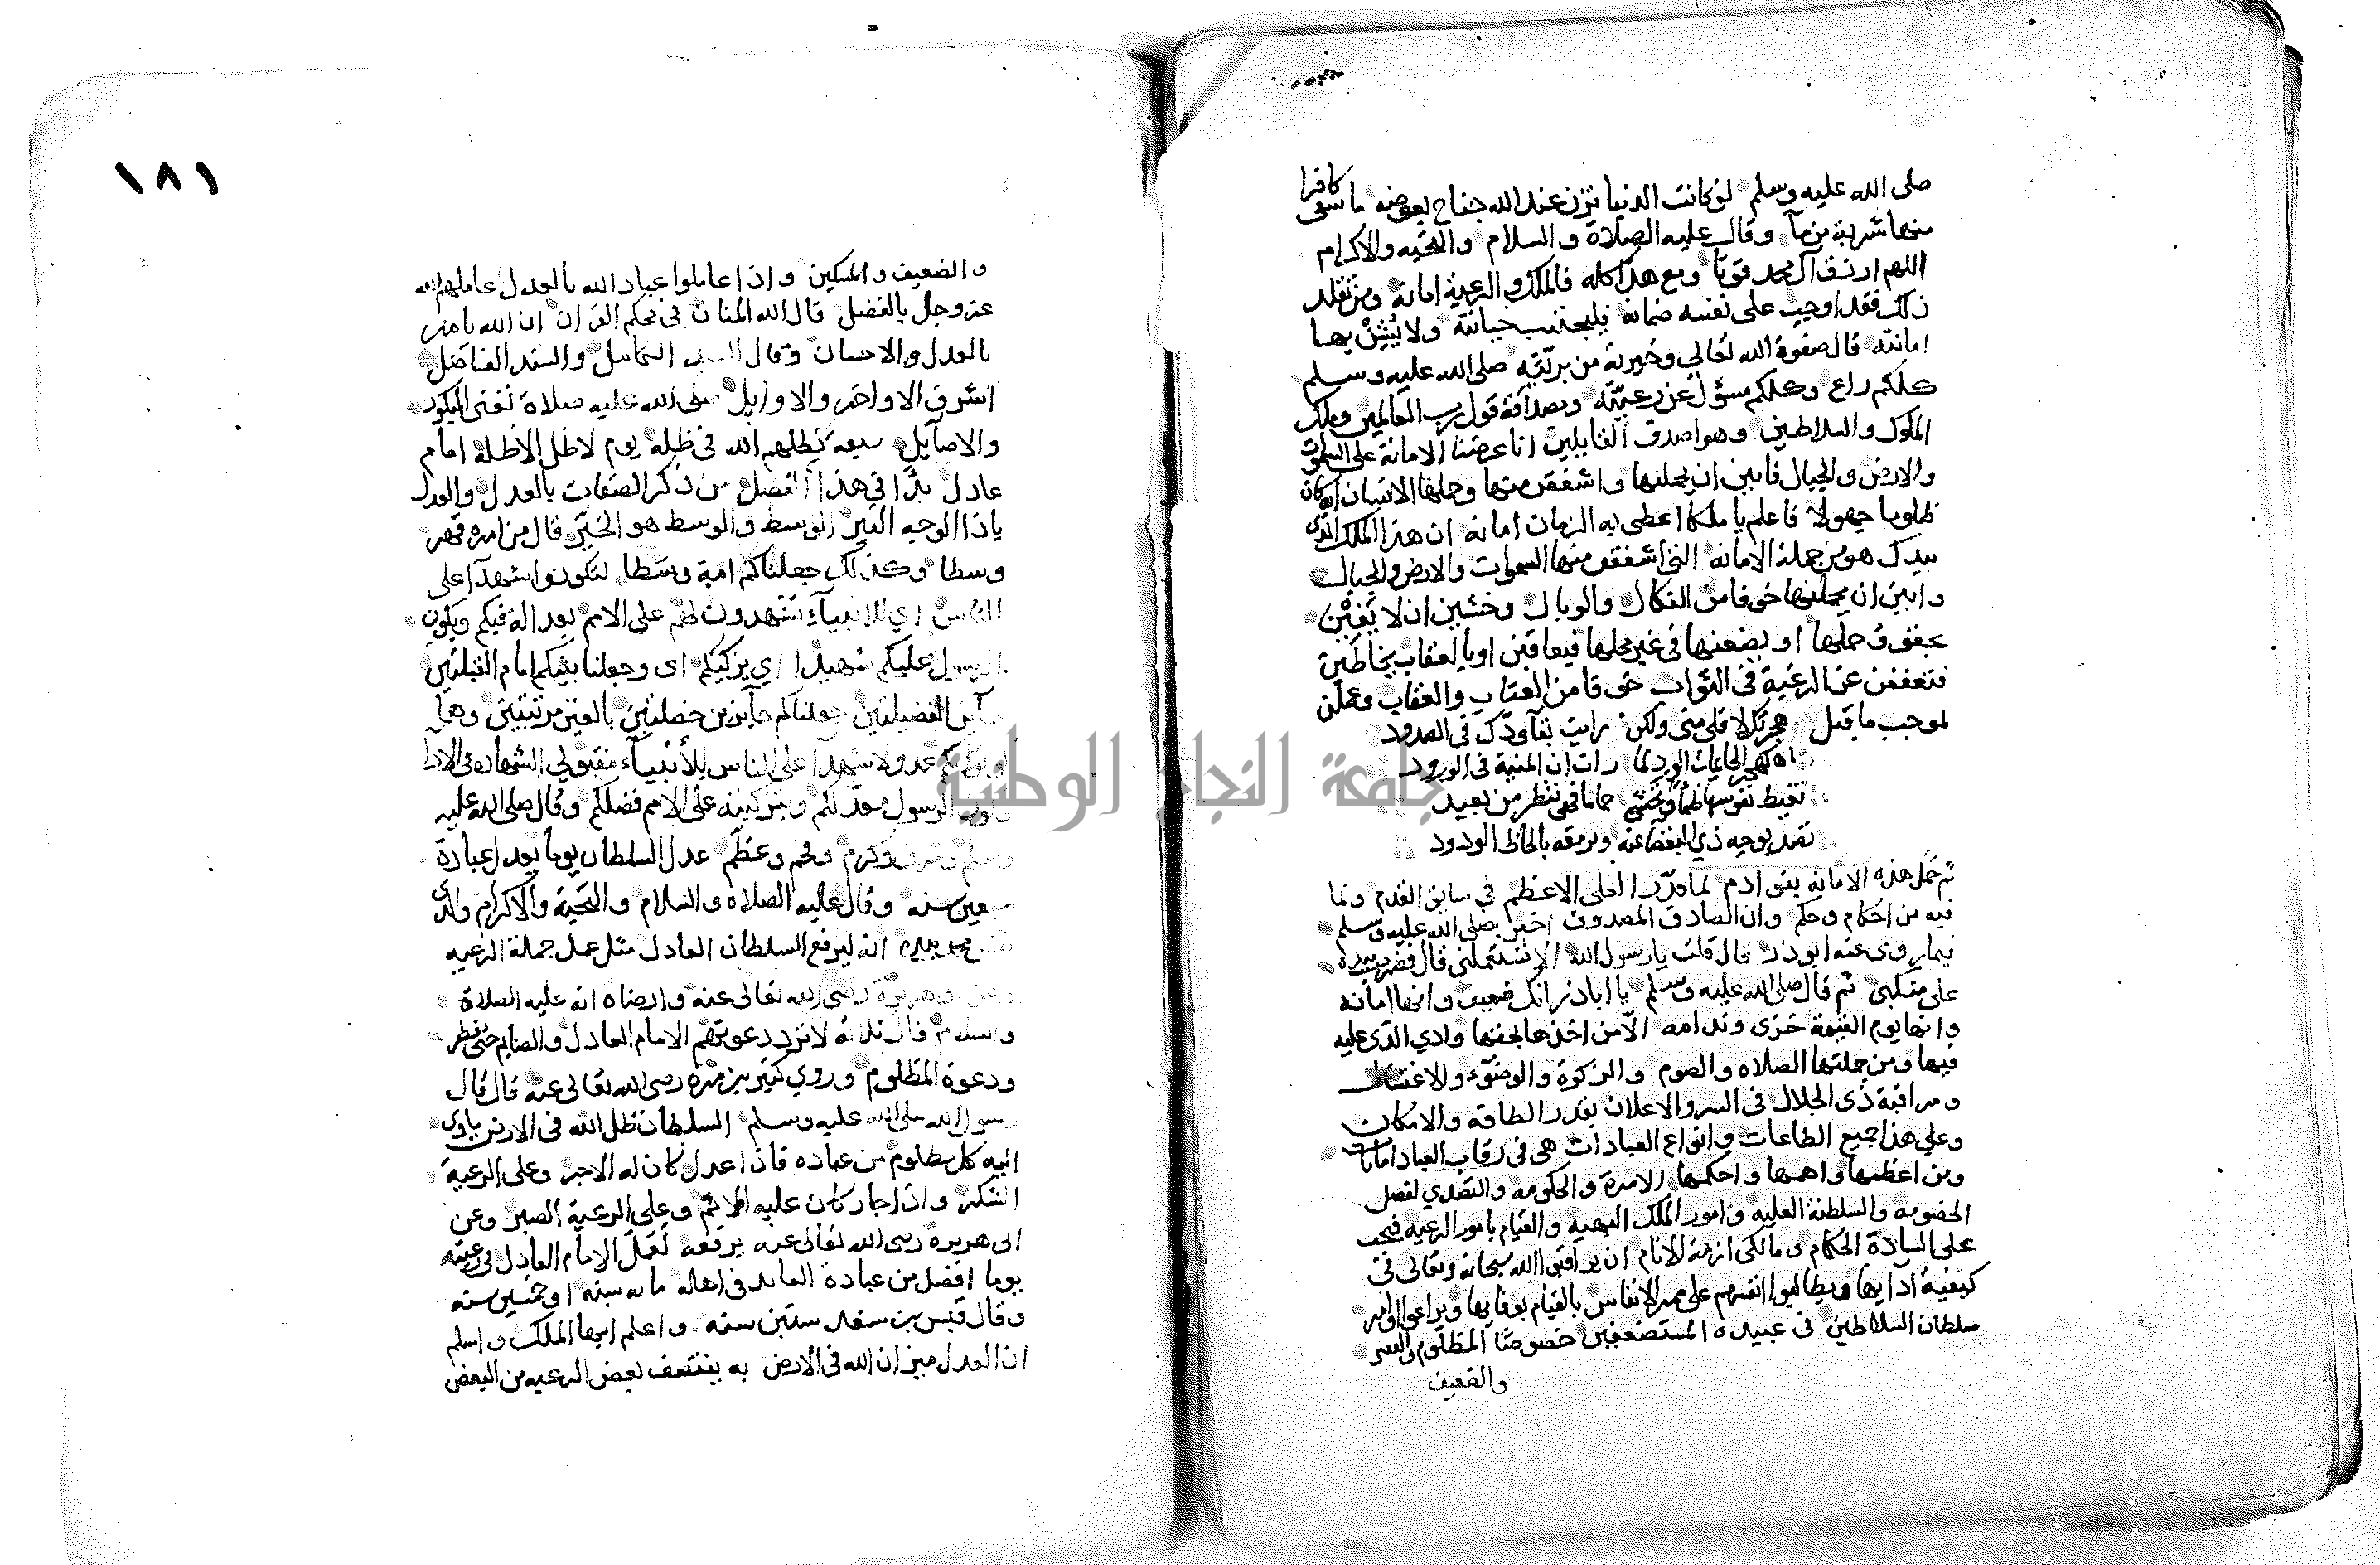 صلى الله عليه وسلم لو كانت الدنيا تزن عند الله جناح بعوضه ما سقى كافرا
منها شربة من مآ وقال عليه الصلاة والسلام والتحيه والاكرام
اللهم ارزق آل محمد قوتا ومع هذا كله فالملك والرعية امانة ومن تقلد
ذلك فقد اوجب على نفسه ضمانه فليجتنب خيانته ولا يشن بها
امانته قال صفوة الله تعالي وخيرته من بريته صلى الله عليه وسلم
كلكم راع وكلكم مسؤل عن رعيته وبصداقة قول رب العالمين وملك
الملوك والسلاطين وهو اصدق القايلين انا عرضنا الامانة على السموات
والارض والجبال فابين ان يحملنها واشفقن منها وحملها الانسان انه كان
ظلوما جهولا فاعلم يا ملكا اعطى به الزمان امانه ان هذا الملك الذى
بيدك هو من جملة الامانه التي اشفقن منها السموات والارض والجبال
وابين ان يحملنها خوفا من النكال والوبال وخشين ان لا يفين
بحقوق حملها او يضعنها فى غير محلها فيعاقبن او بالعقاب يخاطبن
فتعففن عن الرغبة فى الثواب خوفا من العتاب والعقاب وعملن
لموجب ما قيل هجرتك لا قلى منى ولكن رايت بقآ ودك فى الصدود
كهجر الحايمات الورد لما رات ان المنية فى الورود
تغيظ نفوسها ظمأ وتخشى حماما فهى تنظر من بعيد
تصد بوجه ذي البغضا عنه وترمقه بالحاظ الودود
ثم حمل هذه الامانه بنى ادم لما قدر العلى الاعظم في سابق القدم ولما
فيه من احكام وحكم وان الصادق المصدوق اخبر صلى الله عليه وسلم
فيما روى عنه ابو ذر قال قلت يا رسول الله الا تستعملنى قال فضرب بيده
على منكبى ثم قال صلى الله عليه وسلم يا ابا ذر انك ضعيف وانها امانه
وانها يوم القيمة خزى وندامه الا من اخذها بحقها وادي الذى عليه
فيها ومن جملتها الصلاه والصوم والزكوة والوضوء والاغتسال
ومراقبة ذى الجلال فى السر والاعلان بقدر الطاقه والامكان
وعلي هذا جميع الطاعات وانواع العبادات هى فى رقاب العباد امانات
ومن اعظمها واهمها واحكمها الامرة والحكومه والتصدي لفصل
الخصومه والسلطنة العليه وامور الملك البهيه والقيام بامور الرعيه فيجب
على السادة الحكام ومالكى ازمة الانام ان يراقبوا الله سبحانه وتعالى فى
كيفية ادآيها ويطالبوا انفسهم على ممر الانفاس بالقيام بوفايها ويراعوا اوامر
سلطان السلاطين فى عبيده المستضعفين خصوصا المظلوم والفقير
والضعيف
١٨١
والضعيف والمسكين واذا عاملوا عباد الله بالعدل عاملهم الله
عز وجل بالفضل قال الله المنان فى محكم القرآن ان الله يامر
بالعدل والاحسان وقال السيد الكامل والسند الفاضل
اشرف الاواخر والاوايل صلى الله عليه صلاة تغنى البكور
والاصآيل سبعة يظلهم الله فى ظله يوم لا ظل الا ظله امام
عادل بدا فى هذا الفضل من ذكر الصفات بالعدل والعدل
ياذا الوجه النير الوسط والوسط هو الخير قال من امره قهر
وسطا وكذلك جعلناكم امة وسطا لتكونوا شهدآ على
الناس اي للانبيآء تشهدون لهم على الامم بعدالة فيكم ويكون
الرسول عليكم شهيدا اي يزكيكم اى وجعلنا نبيكم امام القبلتين
الفضيلتين جعلناكم حآيزين خصلتين بالغين مرتبتين وهما
عدولا شهدآ على الناس للأنبيآء مقبولي الشهادة فى الادا
الرسول معدلكم وبتزكيته على الامم فضلكم وقال صلى الله عليه
وسلم وشرف وكرم وفخم وعظم عدل السلطان يوما يعدل عبادة
سبعين سنه وقال عليه الصلاه والسلام والتحية والاكرام والذى
نفس محمد بيده انه ليرفع السلطان العادل مثل عمل جملة الرعيه
وعن ابى هريرة رضى الله تعالى عنه وارضاه انه عليه الصلاة
والسلام قال ثلاثة لا ترد دعوتهم الامام العادل والصايم حتى يفطر
ودعوة المظلوم وروي كثير بن مرة رضى الله تعالى عنه قال قال
رسول الله صلى الله عليه وسلم السلطان ظل الله فى الارض ياوى
اليه كل مظلوم من عباده فاذا عدل كان له الاجر وعلى الرعية
الشكر واذا جار كان عليه الاثم وعلى الرعية الصبر وعن
ابى هريرة رضى الله تعالى عنه يرفعه لعمل الامام العادل فى رعيته
يوما افضل من عبادة العابد فى اهله مايه سنه او خمسين سنه
وقال قيس بن سعد ستين سنه واعلم ايها الملك واسلم
ان العدل ميزان الله فى الارض به ينتصف لبعض الرعيه من البعض
جامعة النجاح الوطنية